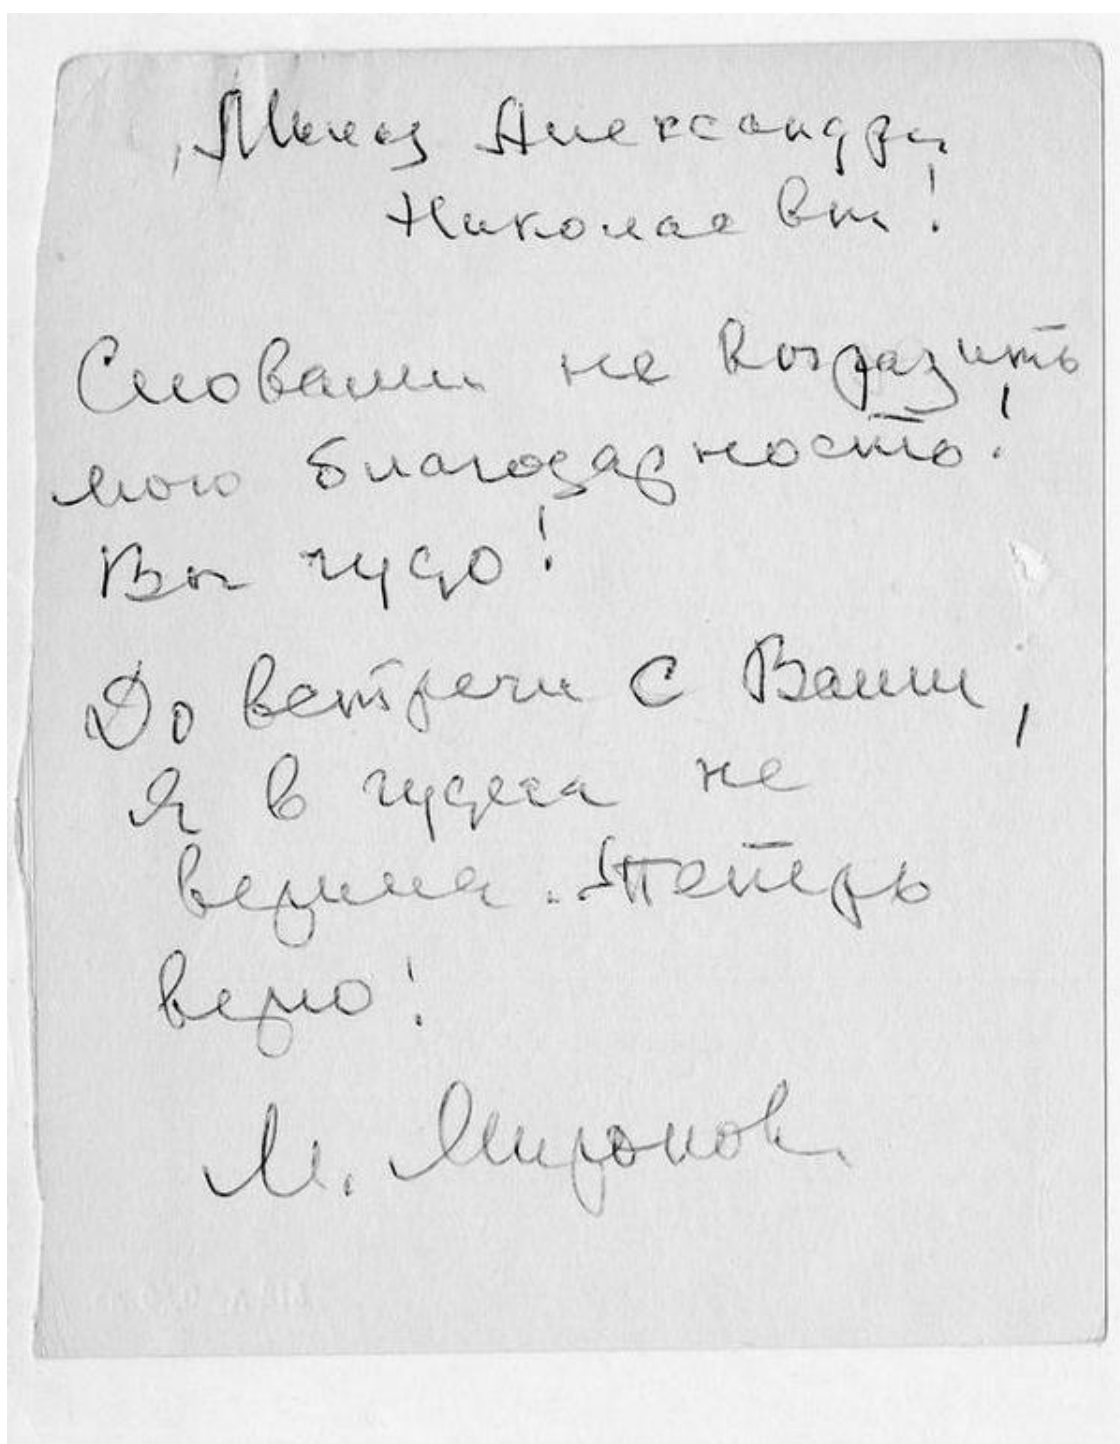 Милая Александра
Николаевна!
Словами не выразить
мою благодарность!
Вы чудо!
До встречи с Вами,
я в чудеса не
верила... Теперь
верю!
М. Миронова